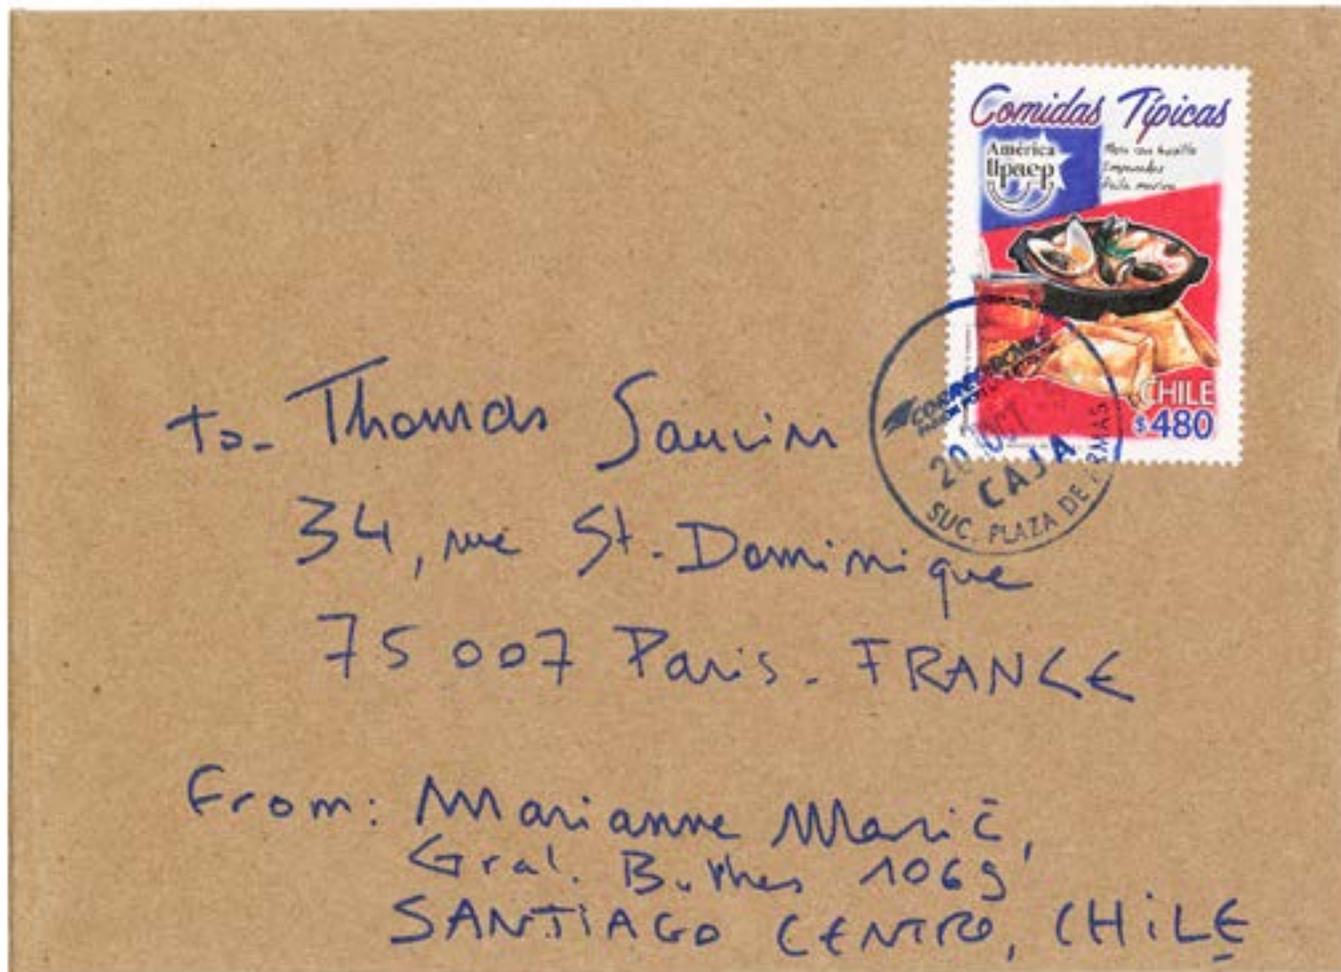 Comidas Típicas
América
Upaep
Mote con huesillo
Empanadas
Paila marina
CHILE
$480
CORREOS CHILE
20 OCT
CAJA
SUC. PLAZA DE ARMAS
To- Thomas Sauvin
34, rue St. Dominique
75007 Paris. FRANCE
From: Marianne Marić,
Gral. 1069
SANTIAGO CENTRO, CHiLE